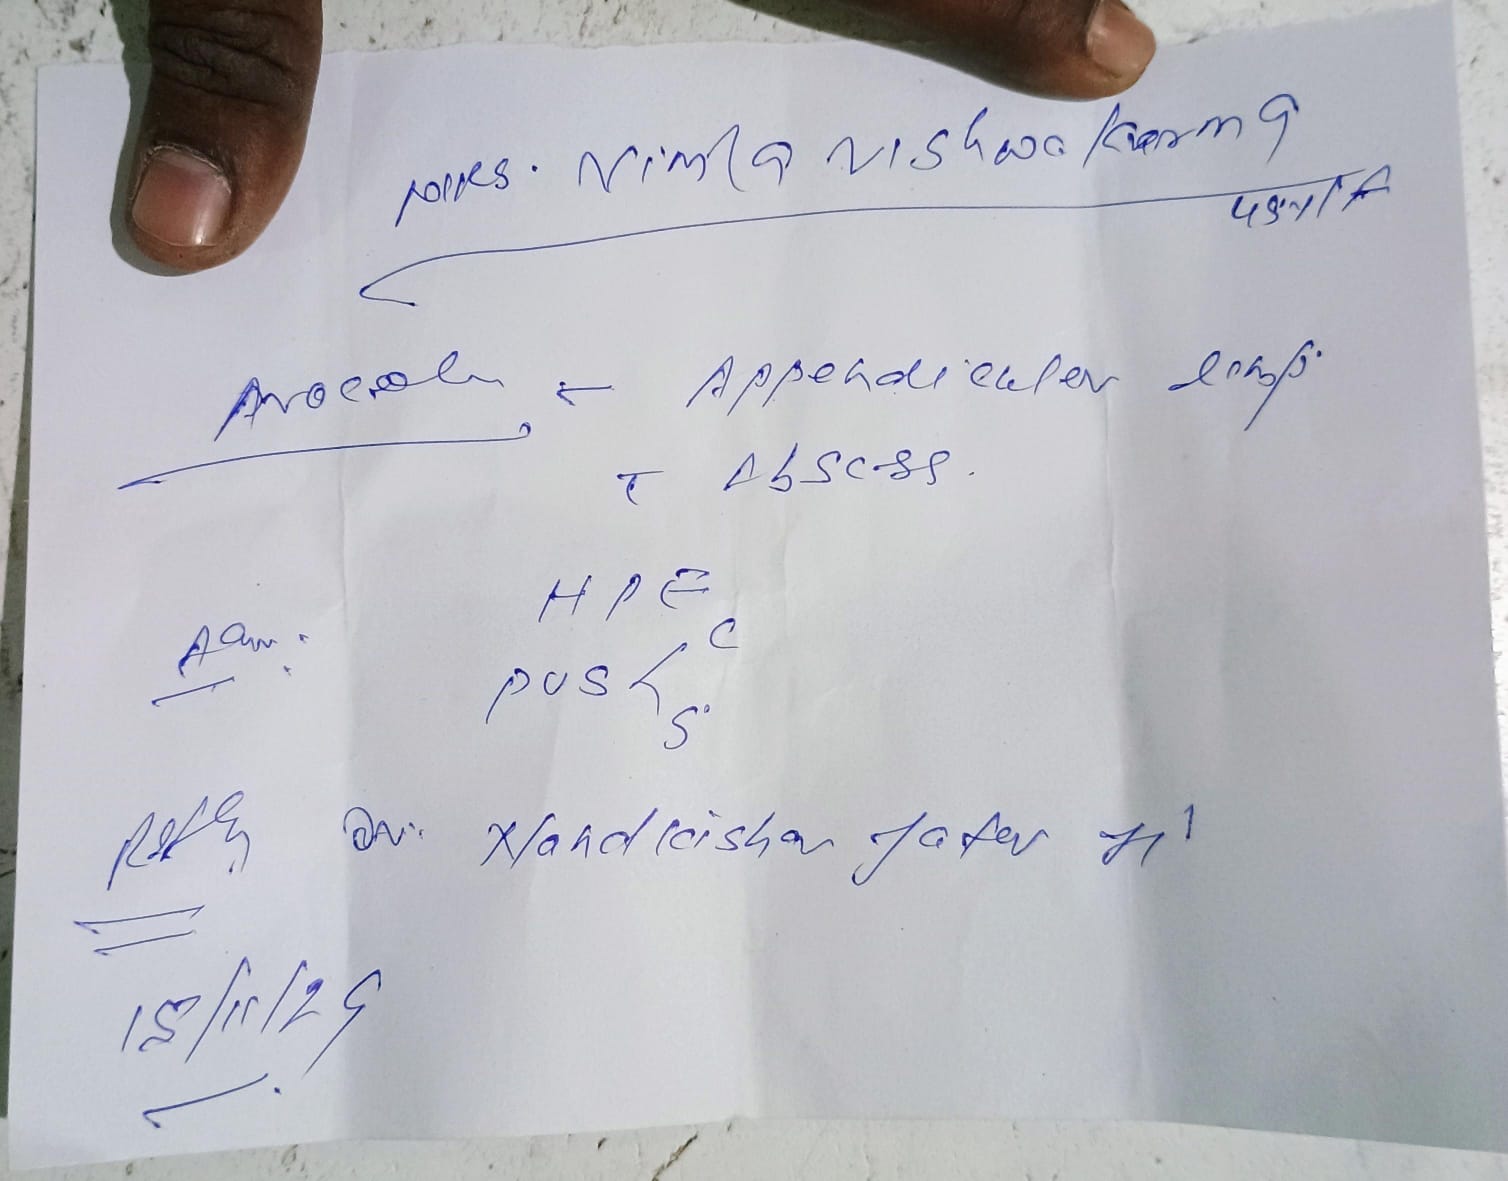 Mrs. Nimla Vishwakarma
45Y/F
← Appendicular lump
c̄ Abscess.
HPE
Adv:
pus < C
S
Ref by Dr. Nandkishor Jatav
18/11/24